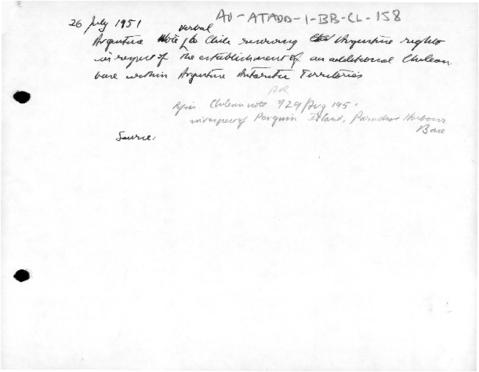 AU-ATADD-1-BB-CL-158
26 July 1951
verbal
Argentine Note to Chile reserving Argentine rights
in respect of the establishment of an additional Chilean
base within Argentine Antarctic Territories
AR
Chilean note 924/
in respect of Penguin Island, Paradise Harbour
Base
Source: